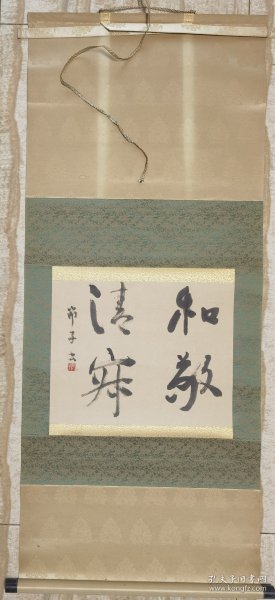 和敬
清寂
節子書
孔夫子旧书网
www.kongfz.com